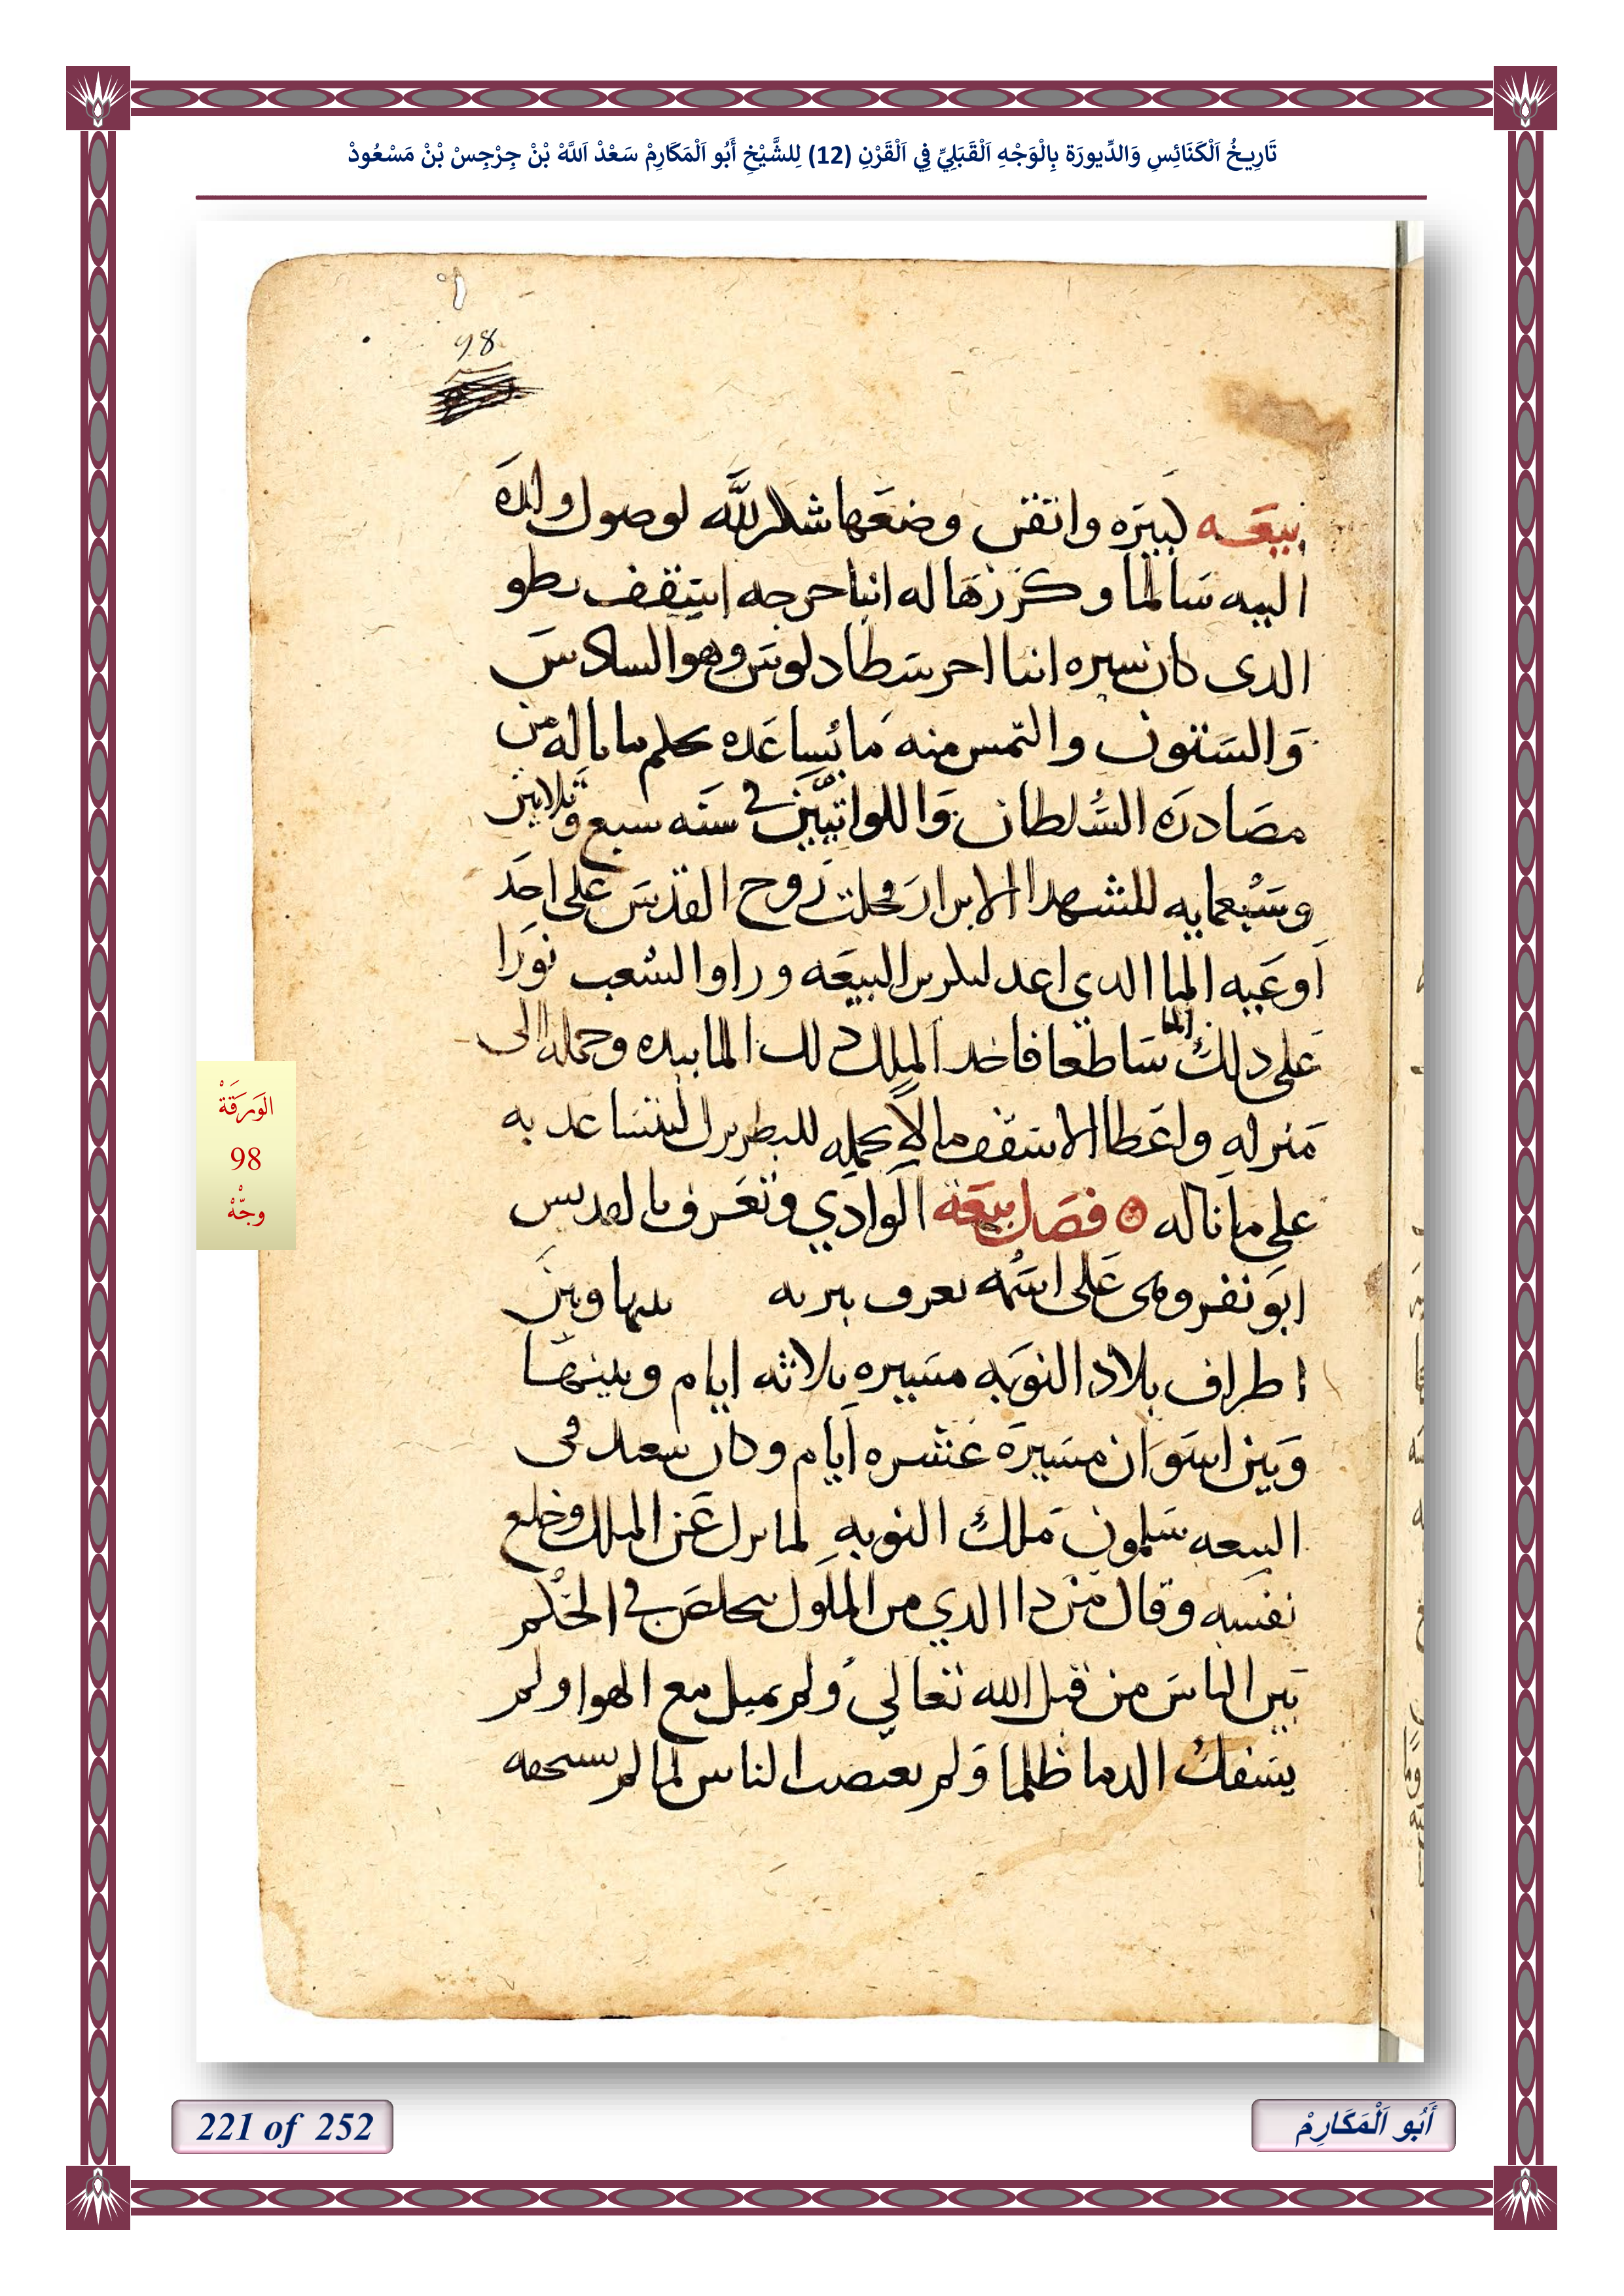 تَارِيخُ اَلْكَنَائِسِ وَالدِّيورَة بِالْوَجْهِ اَلْقَبَلِيِّ فِي اَلْقَرْنِ (12) لِلشَّيْخِ أَبُو اَلْمَكَارِمْ سَعْدْ اَللَّهْ بْنْ جِرْجِسْ بْنْ مَسْعُودْ
98
بيعَـه كبيرَه واتقن وضعَها شكر لله لوصول ولدَه
اليه سَالما وكرزهَا له انبا جرجه اسقف نطو
الدى كان سيره انبا اخرسَطادلوس وهو السادسَ
وَالسَتون والتمس منه مَا يُساعَده بحلم ما ناله من
مصَادرَه السُلطان وَاللواتيّين في سَنَه سبع وَتلاتين
وسَبْعمايه للشهدا الابرارَ فحلت رُوح القدسَ على احَد
اَوعَيه الما الدي اعد لىكرىر البيعَه وراوا الشعب نورَا
عَلى دلكُ الما سَاطعا فاخد المِلك دلك الما بيده وحمله الى
مَنزله واعَطا الاسَقف مالا يحمله للبطريرك ليتسَاعد به
على ما ناله ۞ فصَل بيعَة الوادي وتعَرف بالقديس
ابو نفر وهى عَلى اسمُه تعرف بتربه بينها وبينَ
اطراف بلاد النوبَه مسَيره تلاثه ايام وبينهَا
وَبين اسَوَان مسَيرَة عَشره اَيام وكان تعبد فى
البيعه سَلمون مَلكُ النوبه لما نزل عَن الملك وخلع
نفسَه وقال من دا الدي من الملَوك يخلصَ في الحُكم
بَين الناسَ من قبل الله تعالي وُلم يميل مع الهوا ولم
يسَفكُ الدما ظلما وَلم يغصب الناس لما لم يستحقه
الوَرَقَةْ
98
وجّْهْ
221 of 252
أَبُو اَلْمَكَارِمْ